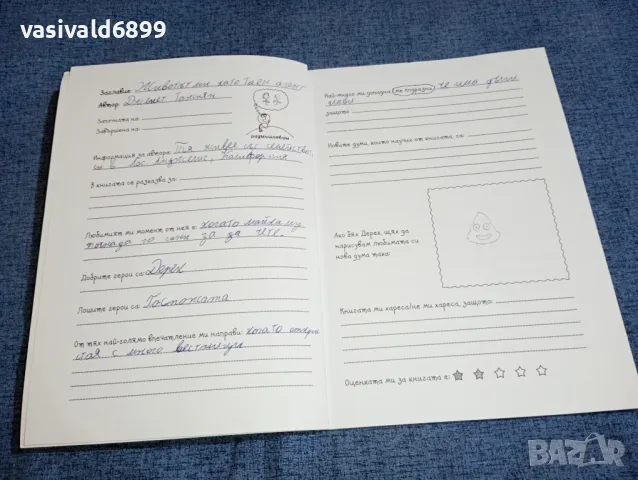 vasivald6899
Заглавие: Животът ми като таен агент
Автор: Джанет Ташджян
Започната на:
Завършена на:
размишлявам
Информация за автора: Тя живее със семейството
си в Лос Анджелис, Калифорния
В книгата се разказва за:
Любимият ми момент от нея е: когато майка му
го
за да яде.
Добрите герои са: Дерек
Лошите герои са: Госпожата
От тях най-голямо впечатление ми направи: когато
стая с много
Най-много ми допадна/ме подразни, че има
защото
Новите думи, които научих от книгата са:
Ако бях Дерек, щях да
нарисувам любимата си
нова дума така:
Книгата ми хареса/не ми хареса, защото:
Оценката ми за книгата е:
BAZAR